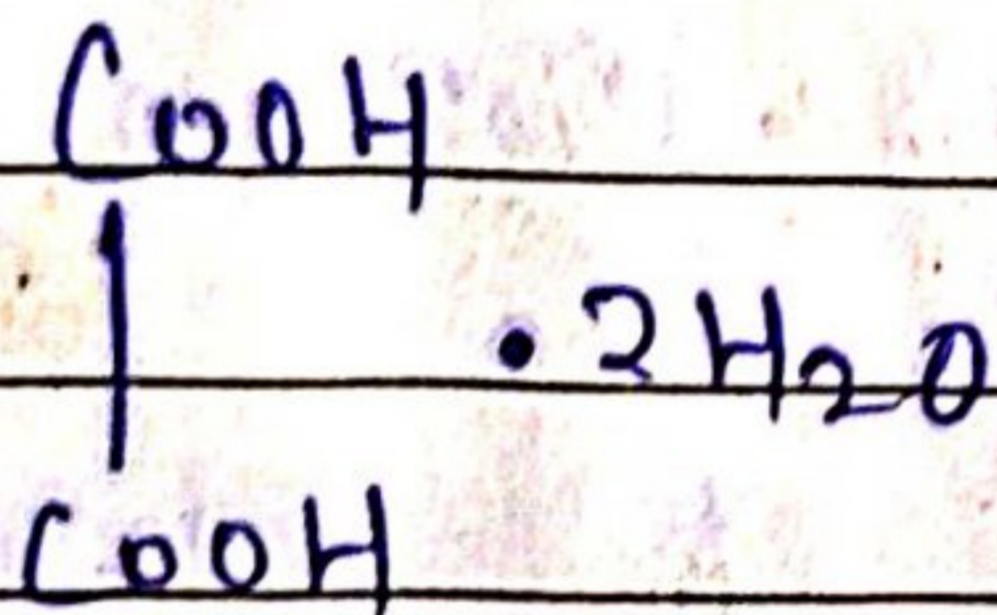 COOH
|
• 2H₂O
COOH